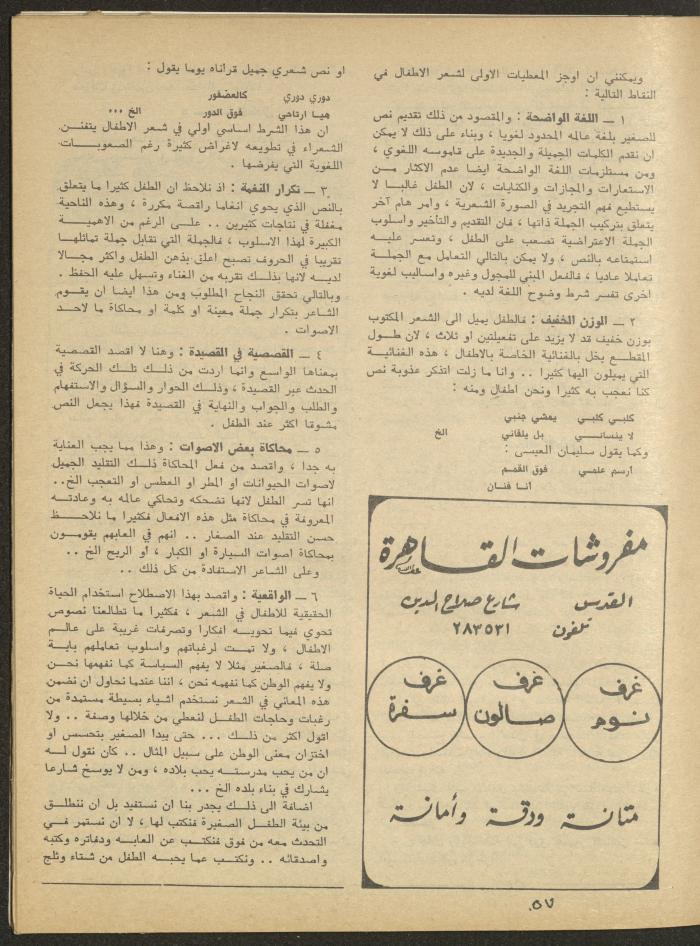 ويمكنني ان اوجز المعطيات الاولى لشعر الاطفال في
النقاط التالية :
١ ــ اللغة الواضحة : والمقصود من ذلك تقديم نص
للصغير بلغة عالمه المحدود لغويا ، وبناء على ذلك لا يمكن
ان نقدم الكلمات الجميلة والجديدة على قاموسه اللغوي ،
ومن مستلزمات اللغة الواضحة ايضا عدم الاكثار مــن
الاستعارات والمجازات والكنايات ، لان الطفل غالبــا لا
يستطيع فهم التجريد في الصورة الشعرية ، وامر هام آخر
يتعلق بتركيب الجملة ذاتها ، فان التقديم والتأخير واسلوب
الجملة الاعتراضية تصعب على الطفل ، وتعسر عليــه
استمتاعه بالنص ، ولا يمكن بالتالي التعامل مع الجملــة
تعاملا عاديا ، فالفعل المبني للمجهول وغيره واساليب لغوية
اخرى تفسر شرط وضوح اللغة لديه .
٢ ــ الوزن الخفيف : فالطفل يميل الى الشعر المكتوب
بوزن خفيف قد لا يزيد على تفعيلتين او ثلاث ، لان طــول
المقطــع يخل بالغنائية الخاصة بالاطفال ، هذه الغنائيــة
التي يميلون اليها كثيرا .. وانا ما زلت اتذكر عذوبة نص
كنا نعجب به كثيرا ونحن اطفال ومنه :
كلبـي كلبـي يمشي جنبي
لا ينسانــــي بل يلقاني الخ
وكما يقول سليمان العيسى :
ارسم علمـي فوق القمـم
انـا فنـان
مفروشات القاهرة
القدس شارع صلاح الدين
تلفون ٢٨٣٥٣١
غرف نوم
غرف صالون
غرف سفرة
متانة ودقة وأمانة
او نص شعري جميل قرأناه يوما يقول :
دوري دوري كالعصفور
هيـا ارتاحي فوق الدور الخ ...
ان هذا الشرط اساسي اولي في شعر الاطفال يتفنن
الشعراء في تطويعه لاغراض كثيرة رغم الصعوبــات
اللغوية التي يفرضها .
٣ ــ تكرار النغمة : اذ نلاحظ ان الطفل كثيرا ما يتعلق
بالنص الذي يحوي انغاما راقصة مكررة ، وهذه الناحية
مغفلة في نتاجات كثيرين .. علــى الرغم من الاهميــة
الكبيرة لهذا الاسلوب ، فالجملة التي تقابل جملة تماثلهــا
تقريبا في الحروف تصبح اعلق بذهن الطفل واكثر مجــالا
لديــه لانها بذلــك تقربه من الغناء وتسهل عليه الحفظ .
وبالتالي تحقق النجاح المطلوب ومن هذا ايضا ان يقــوم
الشاعر بتكرار جملة معينة او كلمة او محاكاة ما لاحــد
الاصوات .
٤ ــ القصصية في القصيدة : وهنا لا اقصد القصصية
بمعناها الواسع وانما اردت من ذلــك تلــك الحركة في
الحدث عبر القصيدة ، وذلــك الحوار والسؤال والاستفهام
والطلب والجواب والنهاية في القصيدة فهذا يجعل النص
مشوقا اكثر عند الطفل .
٥ ــ محاكاة بعض الاصوات : وهذا مما يجب العناية
به جدا ، واقصد من فعل المحاكاة ذلــك التقليد الجميل
لاصوات الحيوانات او المطر او العطس او التعجب الخ..
انها تسر الطفل لانها تضحكه وتحاكي عالمه به وعادتــه
المعروفة في محاكاة مثل هذه الافعال فكثيرا ما نلاحــظ
حسن التقليد عند الصغار .. انهم في العابهم يقومــون
بمحاكاة اصوات السيارة او الكبار ، او الريح الخ ..
وعلى الشاعر الاستفادة من كل ذلك ..
٦ ــ الواقعية : واقصد بهذا الاصطلاح استخدام الحياة
الحقيقية للاطفال في الشعر ، فكثيرا ما تطالعنا نصوص
تحوي فيما تحويــه افكارا وتصرفات غريبة على عالــم
الاطفال ، ولا تمــت لرغباتهم واسلوب تعاملهم بايــة
صلة ، فالصغير مثلا لا يفهم السياسة كما نفهمها نحــن
ولا يفهم الوطن كما نفهمه نحن ، اننا عندما نحاول ان نضمن
هذه المعاني في الشعر نستخدم اشياء بسيطة مستمدة من
رغبات وحاجات الطفــل لنعطي من خلالها وصفة .. ولا
اقول اكثر من ذلــك ... حتى يبدا الصغير بتحسس او
اختزان معنى الوطن على سبيل المثال .. كأن نقول لــه
ان من يحب مدرستــه يحب بلاده ، ومن لا يوسخ شارعا
يشارك في بناء بلده الخ ...
اضافة الى ذلــك يجدر بنا ان نستفيد بل ان ننطلــق
من بيئة الطفــل الصغيرة فنكتب لها ، لا ان نستمر فــي
التحدث معه من فوق فنكتب عن العابــه ودفاتره وكتبه
واصدقائه .. ونكتب عما يحبــه الطفل من شتاء وثلج
٥٧